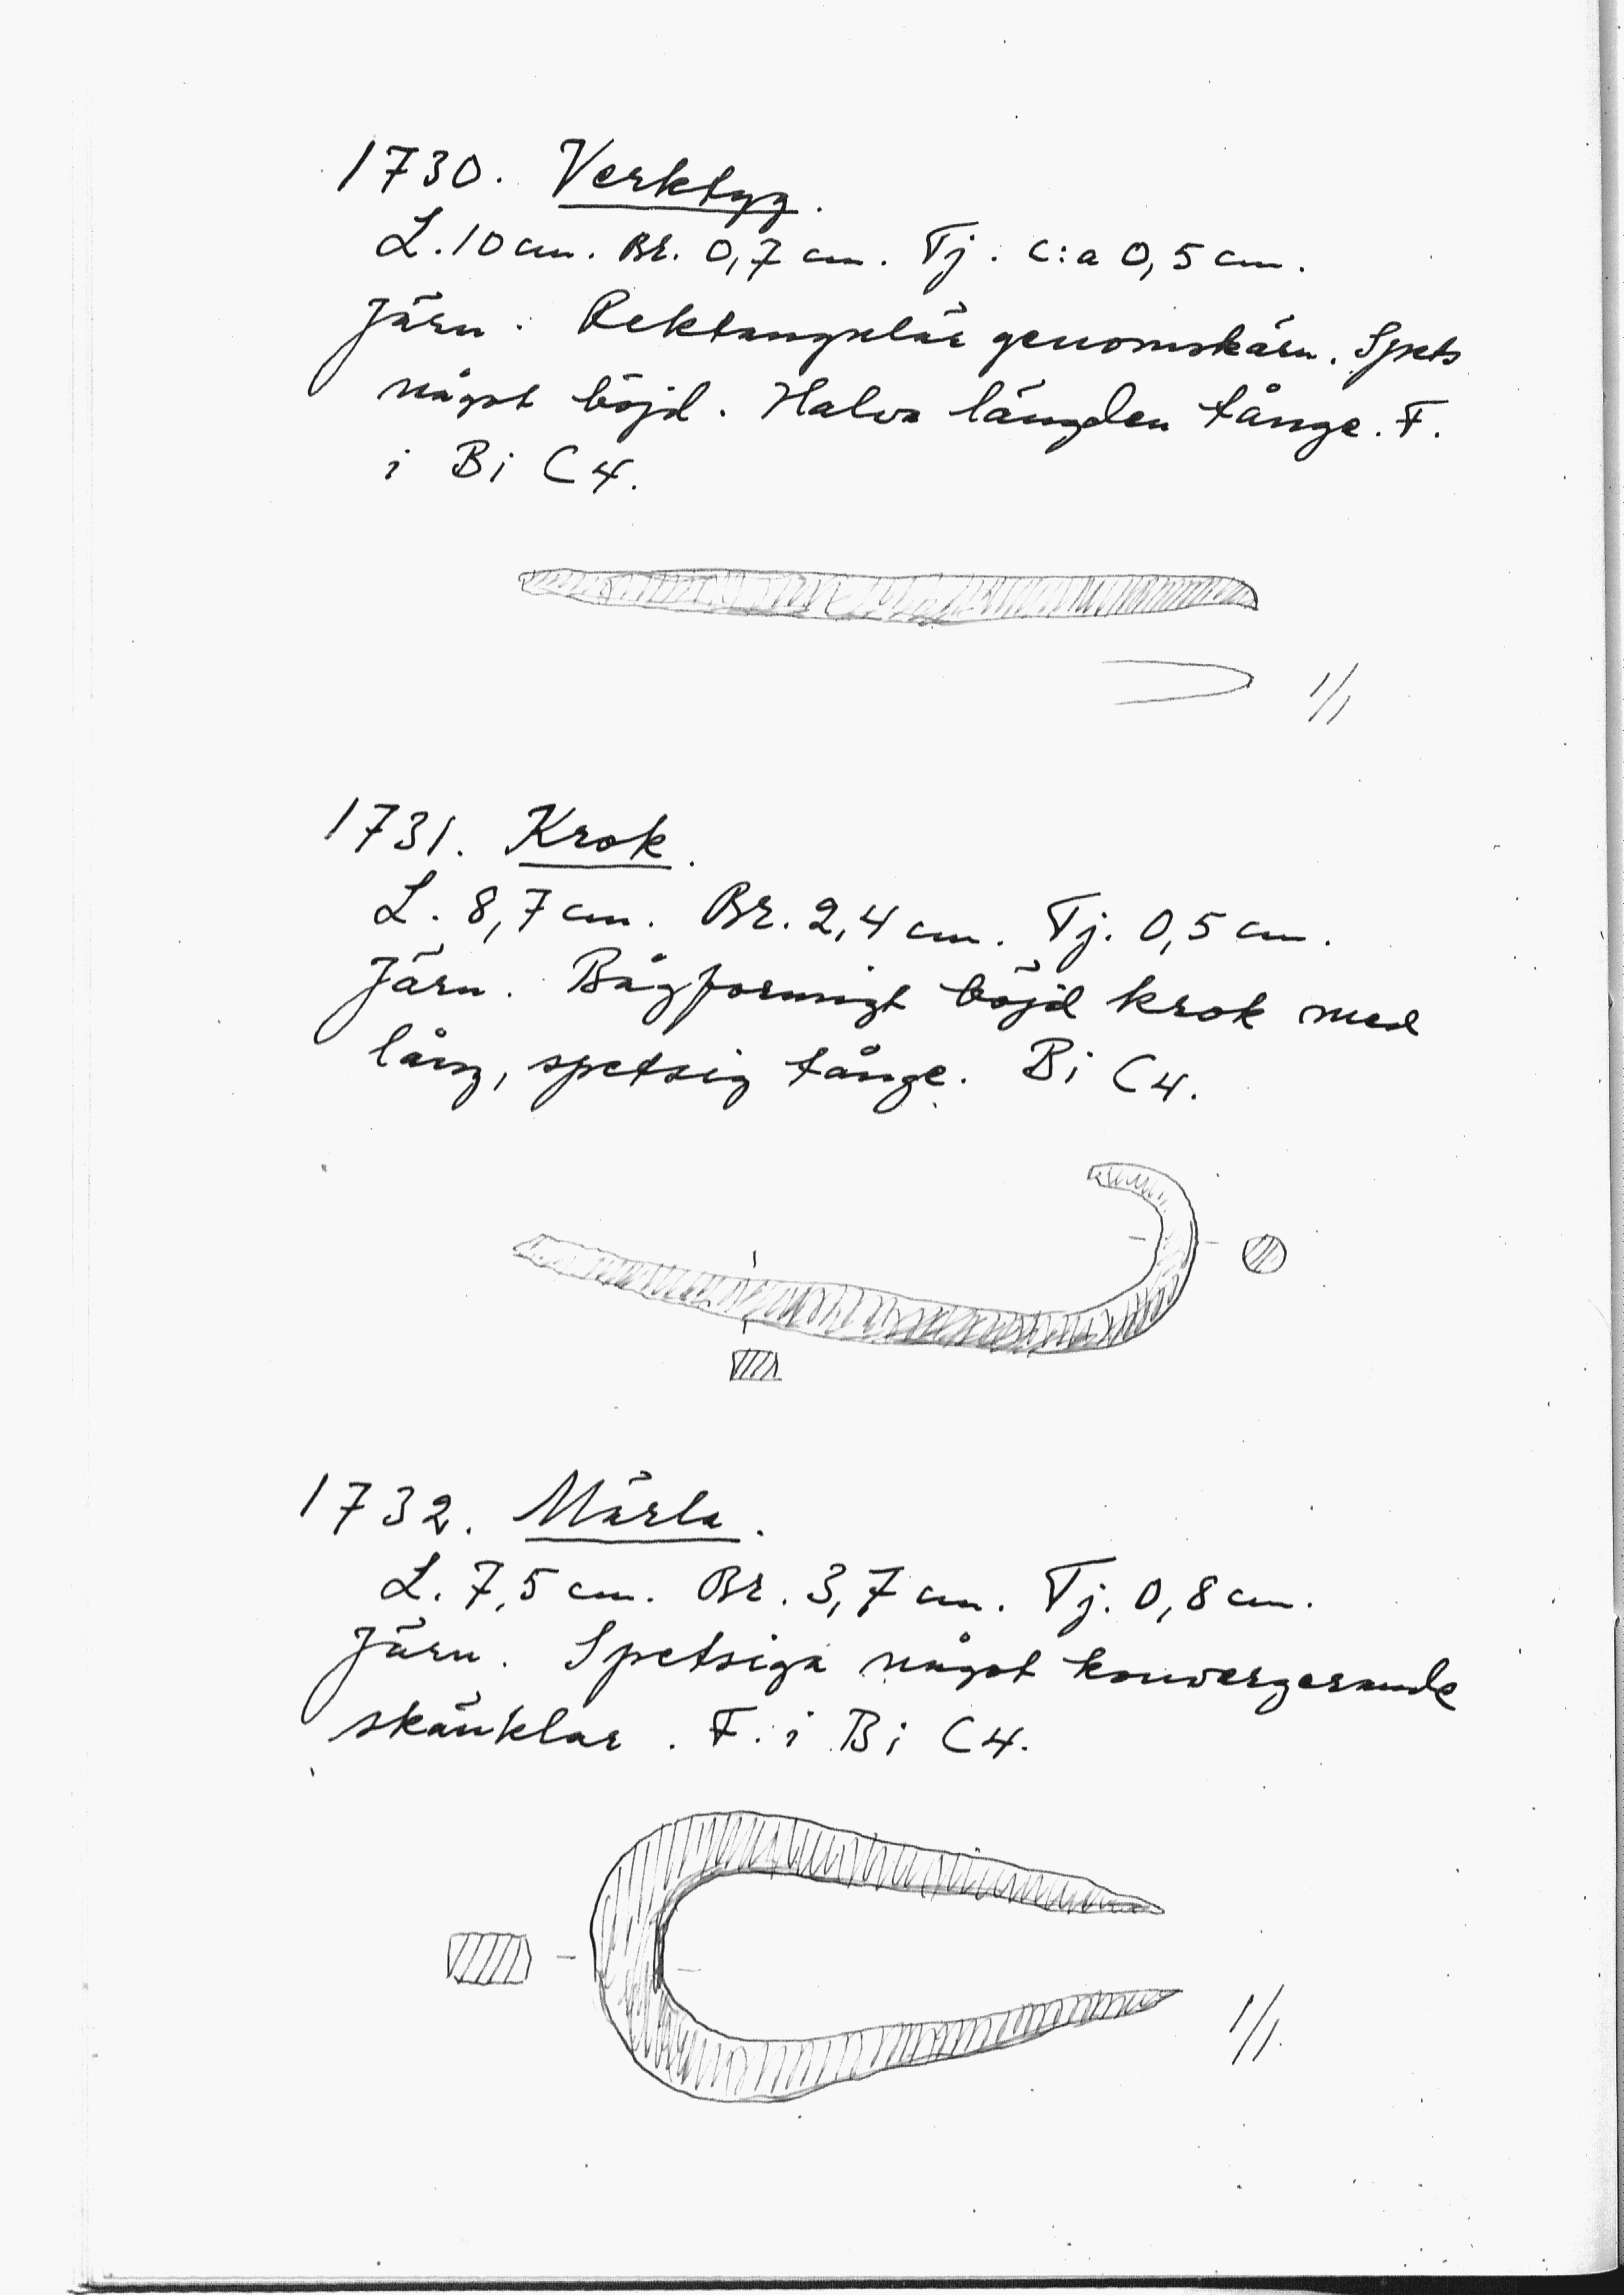 1730. Verktyg.
L. 10 cm. Br. 0,7 cm. Tj. c:a 0,5 cm.
Järn. Rektangulär genomskärn. Spets
något böjd. Halva längden tånge. F.
i Bi C4.
1/1
1731. Krok.
L. 8,7 cm. Br. 2,4 cm. Tj. 0,5 cm.
Järn. Bågformigt böjd krok med
lång, spetsig tånge. Bi C4.
1732. Märla.
L. 7,5 cm. Br. 3,7 cm. Tj. 0,8 cm.
Järn. Spetsiga något konvergerande
skänklar. F. i Bi C4.
1/1.